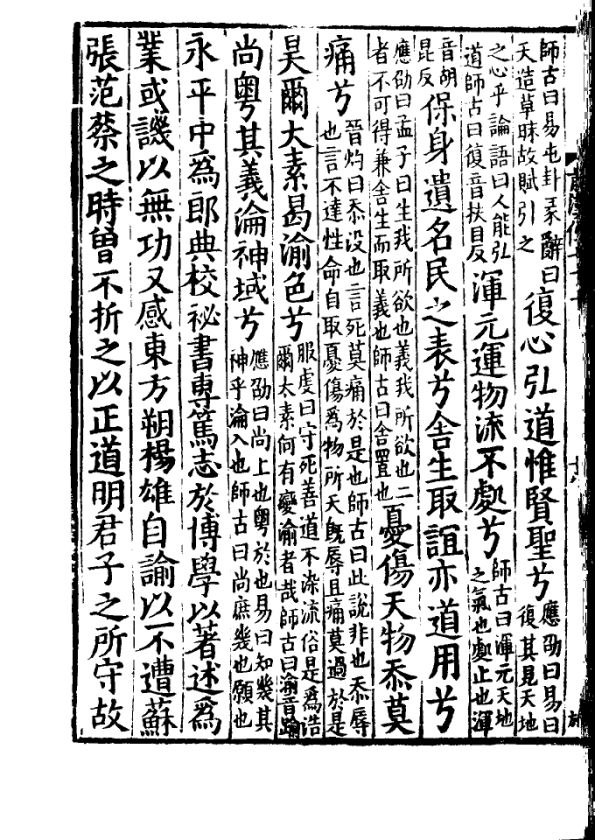 師古曰易屯卦彖辭曰天造草昧故賦引之復心弘道惟賢聖兮應劭曰易曰復其見天地
之心乎論語曰人能弘道師古曰復音扶目反渾元運物流不處兮師古曰渾元天地之氣也處止也渾
音胡昆反保身遺名民之表兮舍生取誼亦道用兮
應劭曰孟子曰生我所欲也義我所欲也二者不可得兼舍生而取義也師古曰舍置也憂傷天物忝莫
痛兮晉灼曰忝没也言死莫痛於是也師古曰此說非也忝辱也言不達性命自取憂傷為物所天旣辱且痛莫過於是
昊爾大素曷渝色兮服虔曰守死善道不染流俗是爲浩爾太素何有變渝者哉師古曰渝音踰
尚粵其義淪神域兮應劭曰尚上也粵於也易曰知幾其神乎淪入也師古曰尚庶幾也願也
永平中爲郎典校祕書專篤志於博學以著述爲
業或譏以無功又感東方朔楊雄自諭以不遭蘇
張范蔡之時曾不折之以正道明君子之所守故